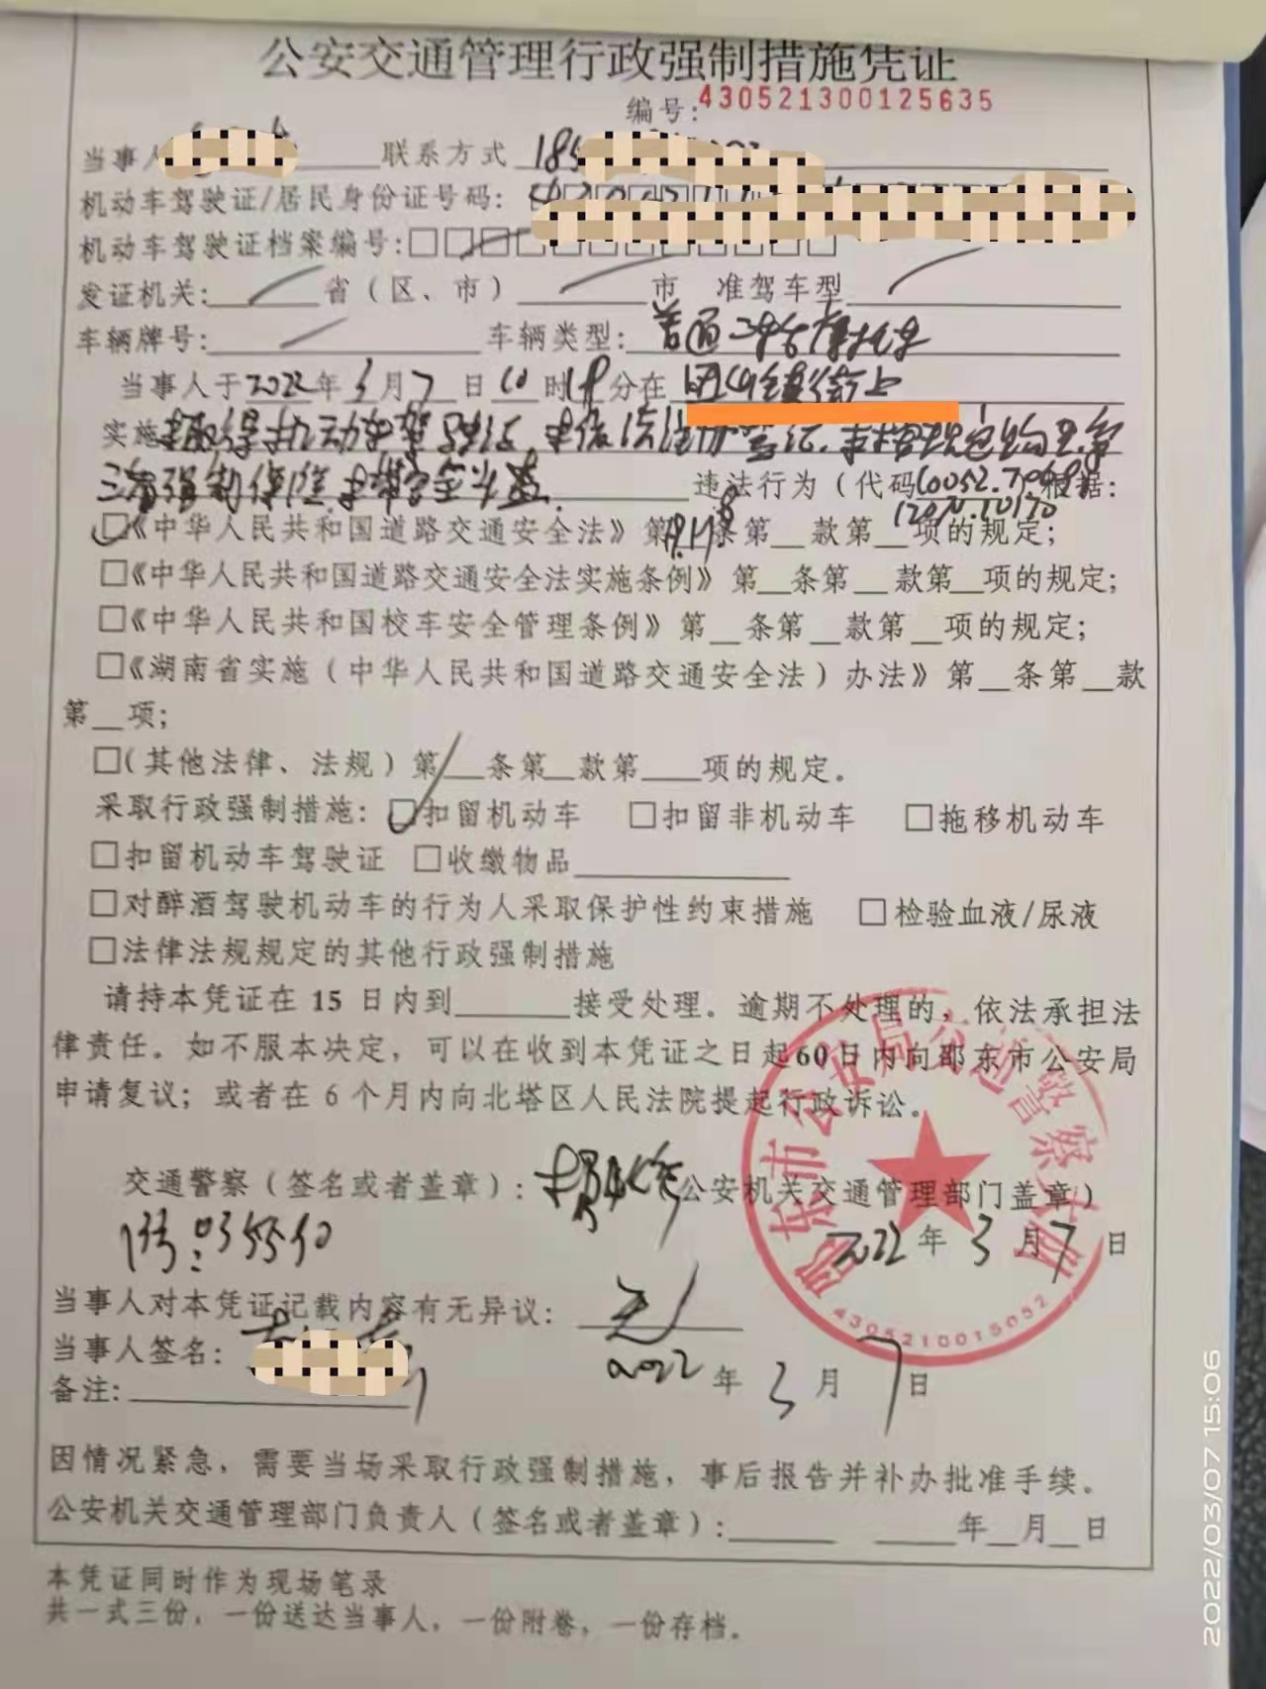 公安交通管理行政强制措施凭证
编号:430521300125635
当事人 联系方式 185
机动车驾驶证/居民身份证号码:
机动车驾驶证档案编号:
发证机关: 省(区、市) 市 准驾车型
车辆牌号: 车辆类型: 普通二轮摩托车
当事人于2022年3月7日10时18分在
实施
违法行为(代码 根据:
☑《中华人民共和国道路交通安全法》第 条第__款第__项的规定;
□《中华人民共和国道路交通安全法实施条例》第__条第__款第__项的规定;
□《中华人民共和国校车安全管理条例》第__条第__款第__项的规定;
□《湖南省实施(中华人民共和国道路交通安全法)办法》第__条第__款
第__项;
□(其他法律、法规)第__条第__款第__项的规定。
采取行政强制措施: ☑扣留机动车 □扣留非机动车 □拖移机动车
□扣留机动车驾驶证 □收缴物品
□对醉酒驾驶机动车的行为人采取保护性约束措施 □检验血液/尿液
□法律法规规定的其他行政强制措施
请持本凭证在 15 日内到______接受处理。逾期不处理的,依法承担法
律责任。如不服本决定,可以在收到本凭证之日起60日内向邵东市公安局
申请复议;或者在 6 个月内向北塔区人民法院提起行政诉讼。
交通警察(签名或者盖章): 公安机关交通管理部门盖章)
035540 2022年3月7日
邵东市公安局交通警察大队
4305210015052
当事人对本凭证记载内容有无异议: 无
当事人签名: 2022年3月7日
备注:
因情况紧急,需要当场采取行政强制措施,事后报告并补办批准手续。
公安机关交通管理部门负责人(签名或者盖章):______ ____年__月__日
本凭证同时作为现场笔录
共一式三份,一份送达当事人,一份附卷,一份存档。
2022/03/07 15:06